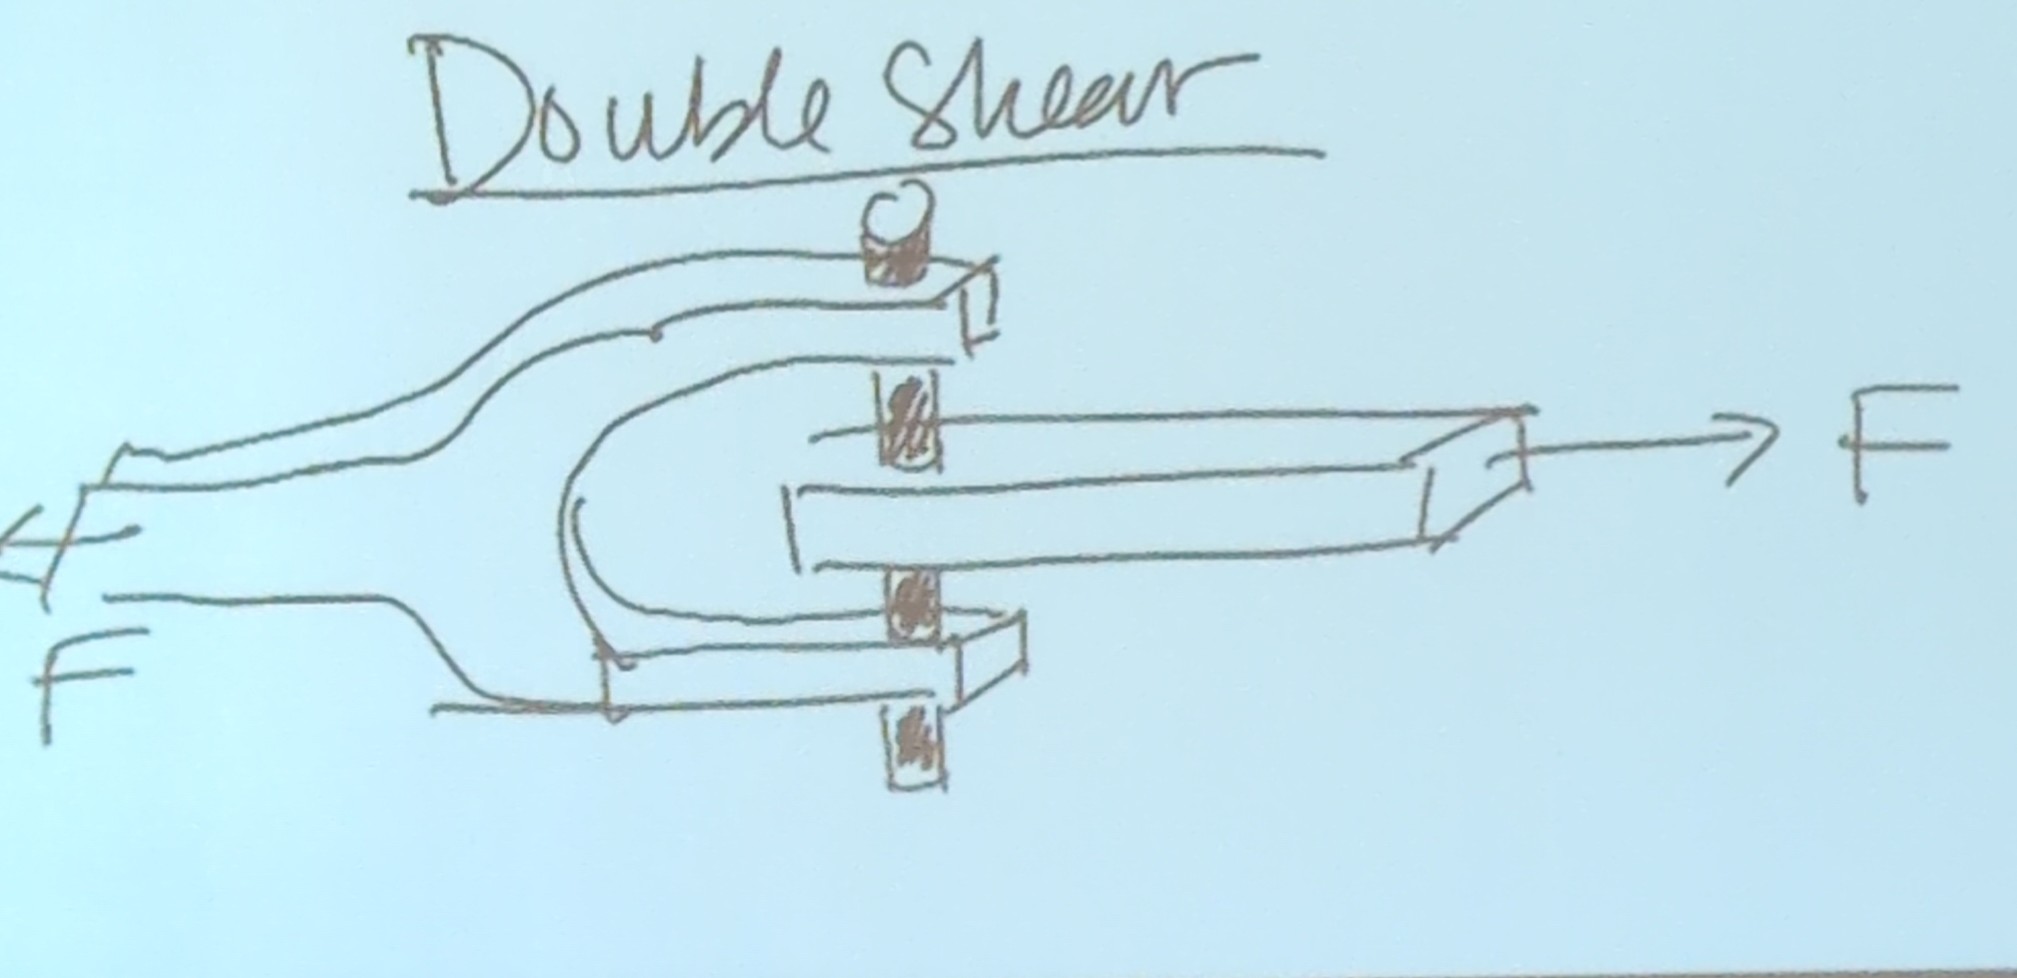 Double Shear
F
F